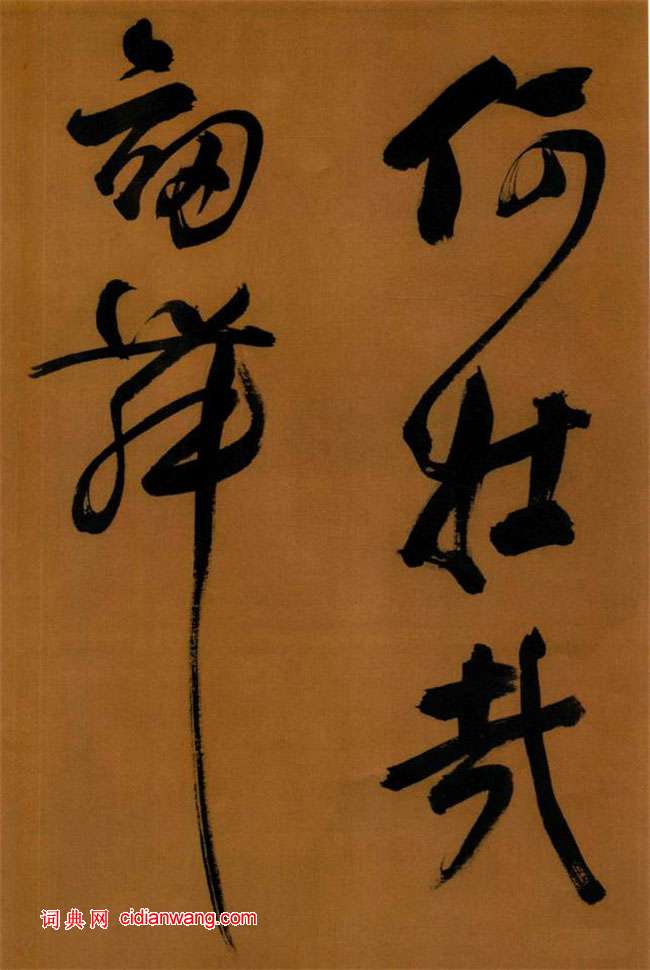 何壮哉
舞
词典网 cidianwang.com